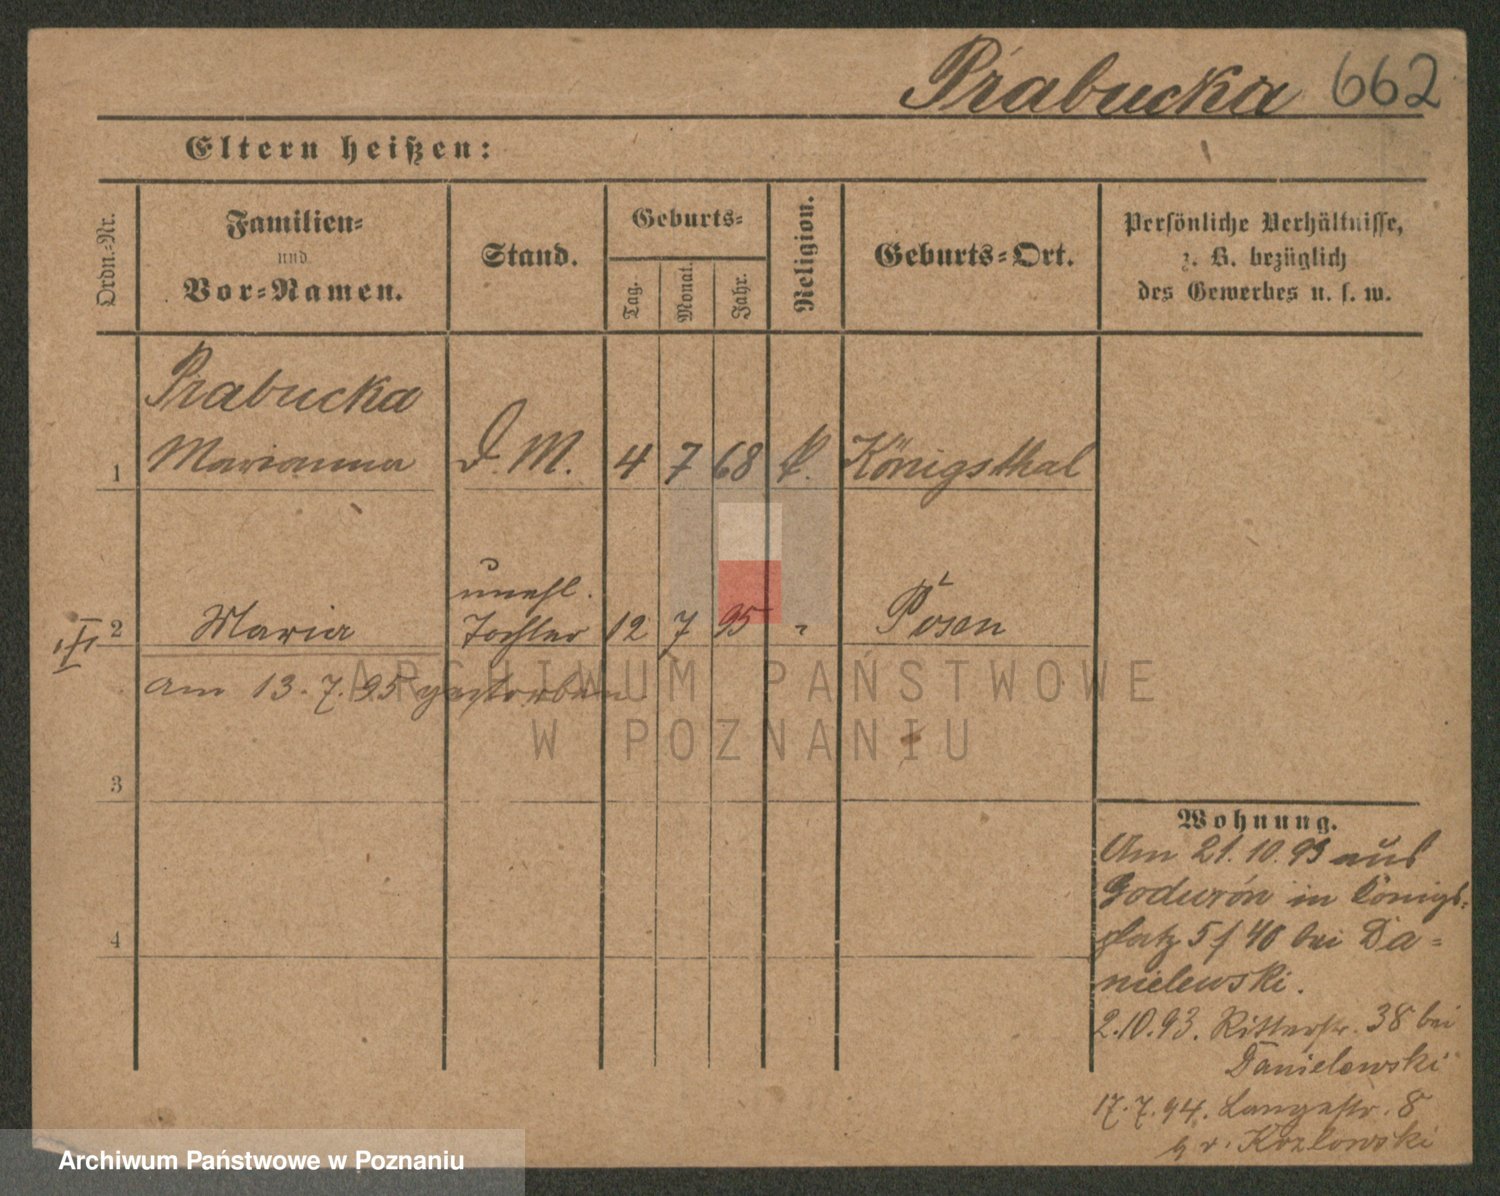 Prabucka 662
Eltern heißen:
Ordn.-Nr.
Familien-
und
Vor-Namen.
Stand.
Geburts-
Tag.
Monat.
Jahr.
Religion.
Geburts-Ort.
Persönliche Verhältnisse,
z. B. bezüglich
des Gewerbes u. s. w.
Prabucka
1 Marianna D. M. 4 7 68 k. Königsthal
unehl.
2 Maria Tochter 12 7 95 " Posen
am 13.7.95 gestorben
3
4
Wohnung.
Am 21.10. aus
in Königs-
platz 5 / 40 bei Da-
nielewski.
2.10.93. Ritterstr. 38 bei
Danielewski
17.7.94. Langestr. 8
Kozlowski
ARCHIWUM PAŃSTWOWE
W POZNANIU
Archiwum Państwowe w Poznaniu